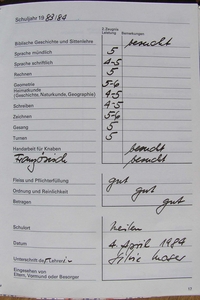 Schuljahr 1983/84
2. Zeugnis
Leistung Bemerkungen
Biblische Geschichte und Sittenlehre besucht
Sprache mündlich 5
Sprache schriftlich 4-5
Rechnen 5
Geometrie 5-6
Heimatkunde
(Geschichte, Naturkunde, Geographie) 4-5
Schreiben 4-5
Zeichnen 5-6
Gesang 5
Turnen 5
Handarbeit für Knaben besucht
Französisch besucht
Fleiss und Pflichterfüllung gut
Ordnung und Reinlichkeit gut
Betragen gut
Schulort Meilen
Datum 4. April 1984
Unterschrift des Lehrers Silvia Moser
Eingesehen von
Eltern, Vormund oder Besorger